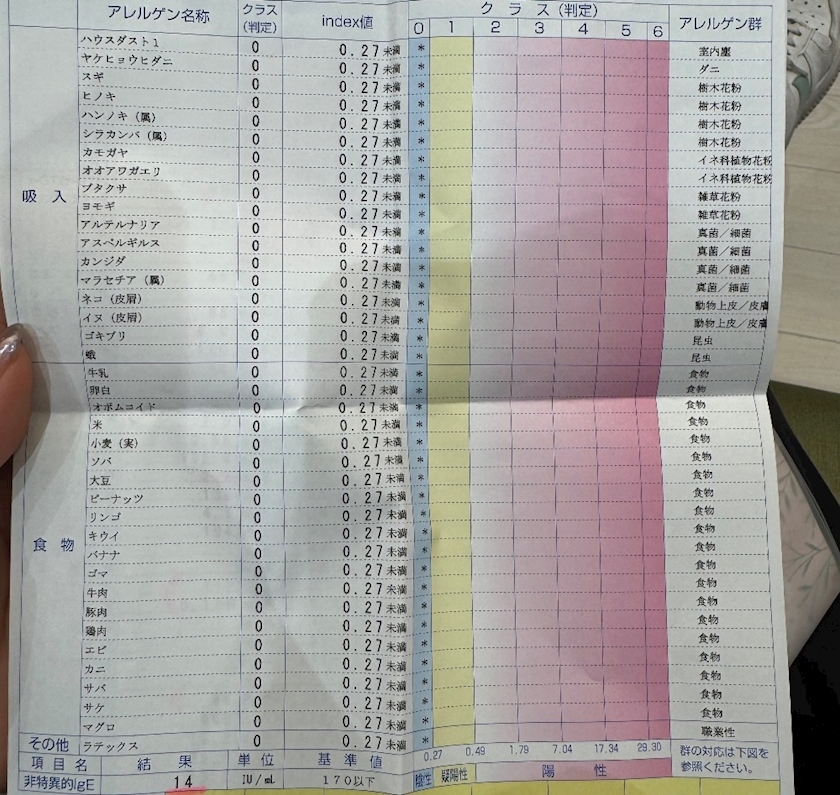 アレルゲン名称 クラス(判定) index値 クラス(判定) アレルゲン群
0 1 2 3 4 5 6
吸入
ハウスダスト1 0 0.27未満 * 室内塵
ヤケヒョウヒダニ 0 0.27未満 * ダニ
スギ 0 0.27未満 * 樹木花粉
ヒノキ 0 0.27未満 * 樹木花粉
ハンノキ(属) 0 0.27未満 * 樹木花粉
シラカンバ(属) 0 0.27未満 * 樹木花粉
カモガヤ 0 0.27未満 * イネ科植物花粉
オオアワガエリ 0 0.27未満 * イネ科植物花粉
ブタクサ 0 0.27未満 * 雑草花粉
ヨモギ 0 0.27未満 * 雑草花粉
アルテルナリア 0 0.27未満 * 真菌/細菌
アスペルギルス 0 0.27未満 * 真菌/細菌
カンジダ 0 0.27未満 * 真菌/細菌
マラセチア(属) 0 0.27未満 * 真菌/細菌
ネコ(皮屑) 0 0.27未満 * 動物上皮/皮膚
イヌ(皮屑) 0 0.27未満 * 動物上皮/皮膚
ゴキブリ 0 0.27未満 * 昆虫
蛾 0 0.27未満 * 昆虫
食物
牛乳 0 0.27未満 * 食物
卵白 0 0.27未満 * 食物
オボムコイド 0 0.27未満 * 食物
米 0 0.27未満 * 食物
小麦(実) 0 0.27未満 * 食物
ソバ 0 0.27未満 * 食物
大豆 0 0.27未満 * 食物
ピーナッツ 0 0.27未満 * 食物
リンゴ 0 0.27未満 * 食物
キウイ 0 0.27未満 * 食物
バナナ 0 0.27未満 * 食物
ゴマ 0 0.27未満 * 食物
牛肉 0 0.27未満 * 食物
豚肉 0 0.27未満 * 食物
鶏肉 0 0.27未満 * 食物
エビ 0 0.27未満 * 食物
カニ 0 0.27未満 * 食物
サバ 0 0.27未満 * 食物
サケ 0 0.27未満 * 食物
マグロ 0 0.27未満 * 食物
その他 ラテックス 0 0.27未満 * 職業性
0.27 0.49 1.79 7.04 17.34 29.30
項目名 結果 単位 基準値 陰性 疑陽性 陽性
群の対応は下図を
参照ください。
非特異的IgE 14 IU/mL 170以下